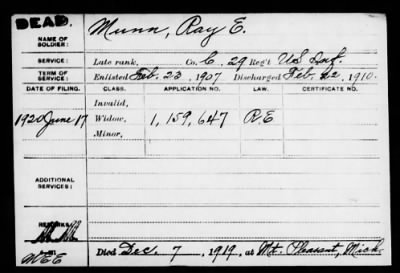 DEAD.
NAME OF SOLDIER: Munn, Ray E.
SERVICE: Late rank, Co. C, 29 Reg't US Inf.
TERM OF SERVICE: Enlisted Feb. 23, 1907 Discharged Feb. 22, 1910.
DATE OF FILING. CLASS. APPLICATION NO. LAW. CERTIFICATE NO.
Invalid,
1920 June 17 Widow, 1,159,647 R.E
Minor,
ADDITIONAL SERVICES:
REMARKS
WEE Died Dec. 7, 1919, at Mt. Pleasant, Mich.